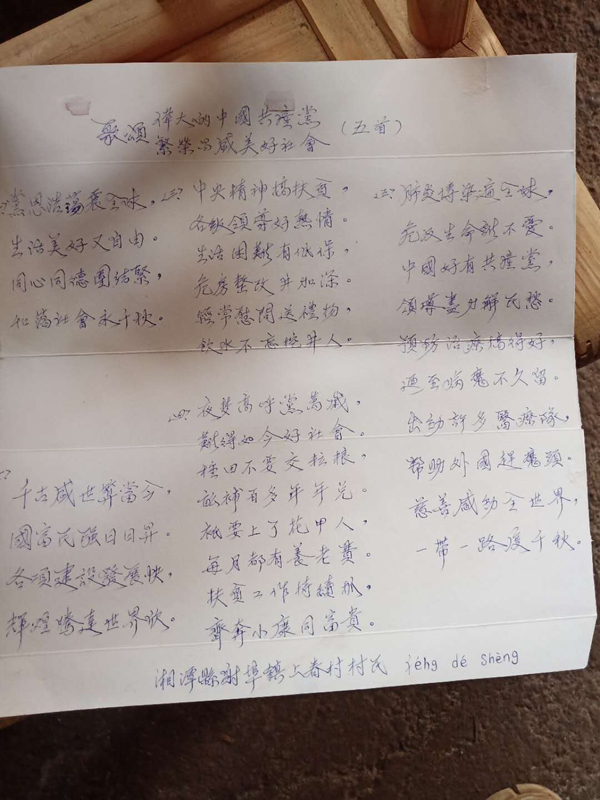 歌頌 偉大的中國共產黨
繁榮昌盛美好社會 (五首)
黨恩浩蕩震全球，
生活美好又自由。
同心同德團結緊，
和諧社會永千秋。
千古盛世算當今，
國富民強日日昇。
各項建設發展快，
輝煌騰達世界欽。
三、中央精神搞扶貧，
各級領導好熱情。
生活困難有低保，
危房整改井加深。
經常慰問送禮物，
飲水不忘挖井人。
四、夜夢高呼黨萬歲，
難得如今好社會。
種田不要交
補百多年年兌。
祗要上了花甲人，
每月都有養老費。
扶貧工作持續抓，
齊奔小康同富貴。
五、肺炎傳染遍全球，
危及生命誰不憂。
中國好有共產黨，
領導盡力解民愁。
預防治療搞得好，
逼至病魔不久留。
出動許多醫療隊，
幫助外國趕魔頭。
慈善感動全世界，
一帶一路 千秋。
湘潭縣射埠鎮上春村村民 dé shèng